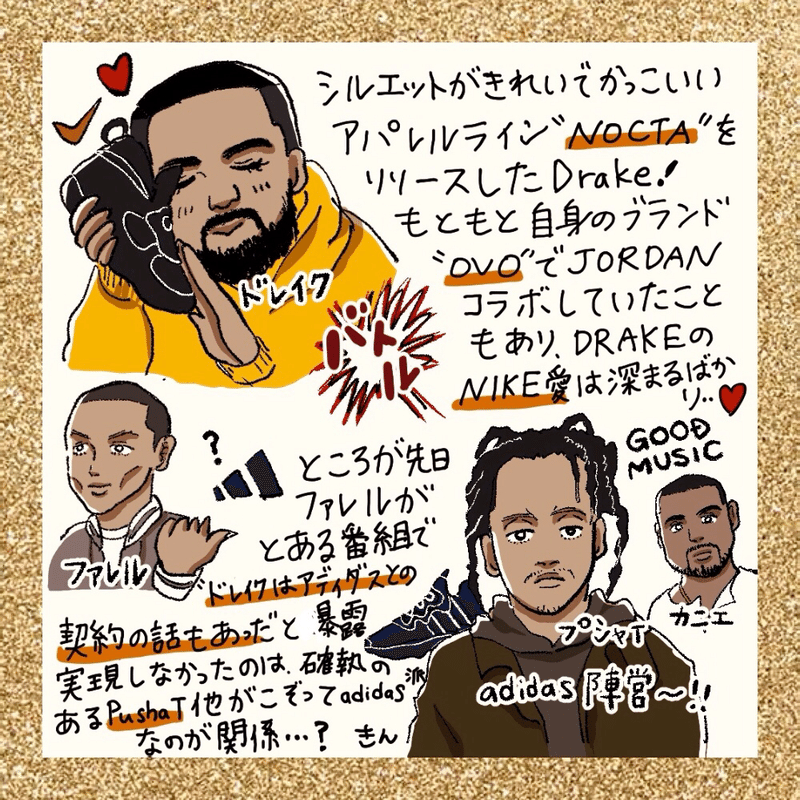 シルエットがきれいでかっこいい
アパレルライン"NOCTA"を
リリースしたDrake!
もともと自身のブランド
"OVO"でJORDAN
コラボしていたこと
もあり、DRAKEの
NIKE愛は深まるばか
り..
ドレイク
バトル
GOOD
MUSIC
?
ところが先日
ファレルが
とある番組で
"ドレイクはアディダスとの
契約の話もあった"と暴露
実現しなかったのは、確執の
あるPushaT他がこぞってadidas派
なのが関係…?
きん
ファレル
プシャT
カニエ
adidas陣営〜!!